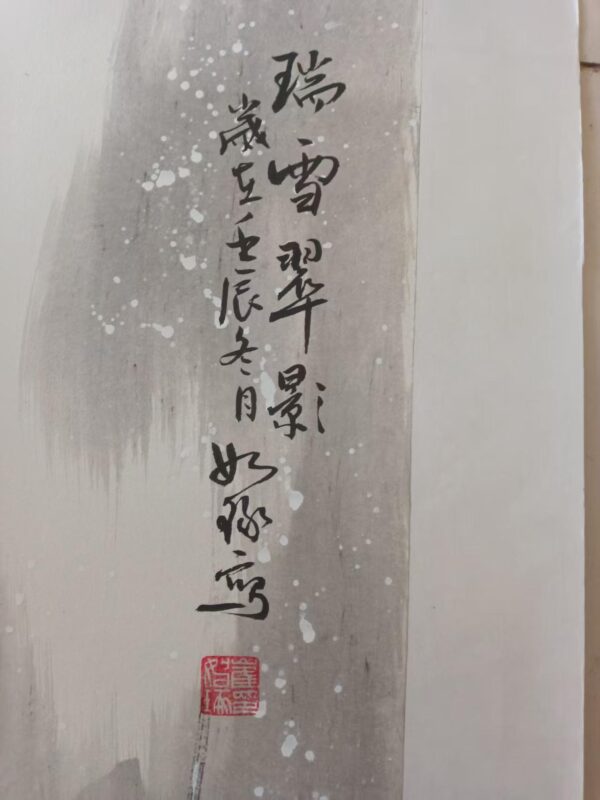 瑞雪翠影
歲在壬辰冬月如琢寫